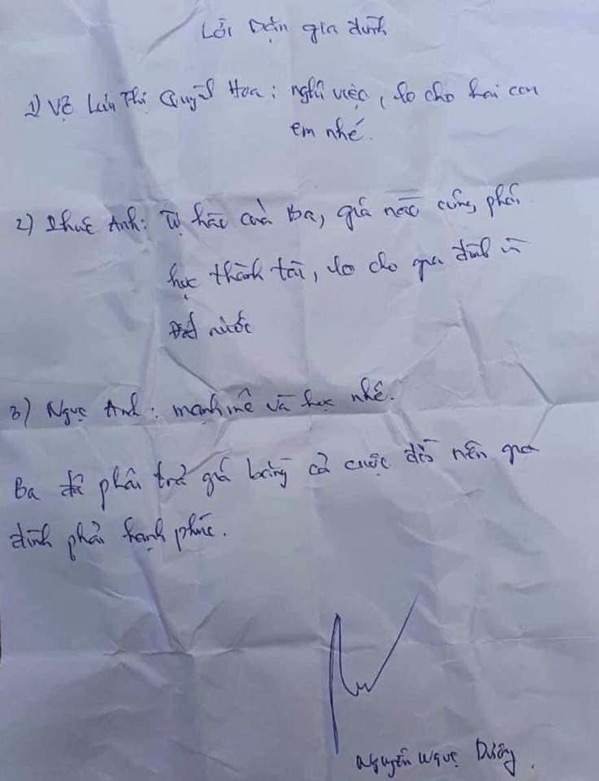 Lời Dặn gia đình
1) Vợ Lưu Thị Quỳnh Hoa: nghỉ việc, lo cho hai con
em nhé.
2) Thục Anh: Tự hào của Ba, giá nào cũng phải
học thành tài, lo cho gia đình và
Đất nước
3) Ngọc Anh: mạnh mẽ và học nhé.
Ba đã phải trả giá bằng cả cuộc đời nên gia
đình phải hạnh phúc.
Nguyễn Ngọc Dương.